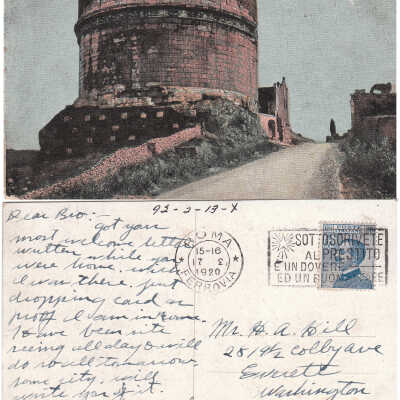 92-2-13-X
Dear Bro:-
got your
most welcome letter
written while you
were home, while
I was there, just
dropping card as
proof I am in Rome.
Have been site
seeing all day & will
do so till tomorrow
some city, will
write
ROMA
15-16
17 2
1920
FERROVIA
SOTTOSCRIVETE
AL PRESTITO
È UN DOVERE
ED UN BUON AFFARE
Mr. H. A. Hill
2819½ Colby ave
Everett
Washington